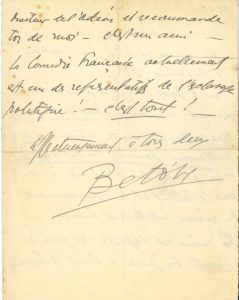 Directeur de l'Odéon et recommande
toi de moi – c'est un ami –
La Comédie Française actuellement
est un des représentatifs de l'esclavage
politique ! – c'est tout ! –
affectueusement à tous deux
Betove